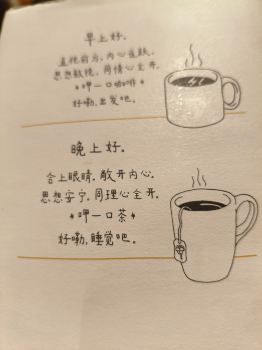 早上好。
直视前方,内心雀跃。
思想敏锐,同情心全开。
*呷一口咖啡*
好嘞,出发吧。
晚上好。
合上眼睛,敞开内心。
思想安宁,同理心全开。
*呷一口茶*
好嘞,睡觉吧。